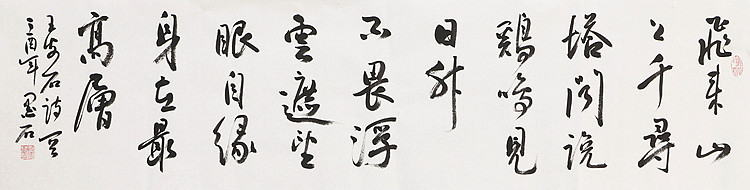 飛來山
上千尋
塔聞說
鷄鳴見
日升
不畏浮
雲遮望
眼自緣
身在最
高層
王安石詩
酉年 墨石